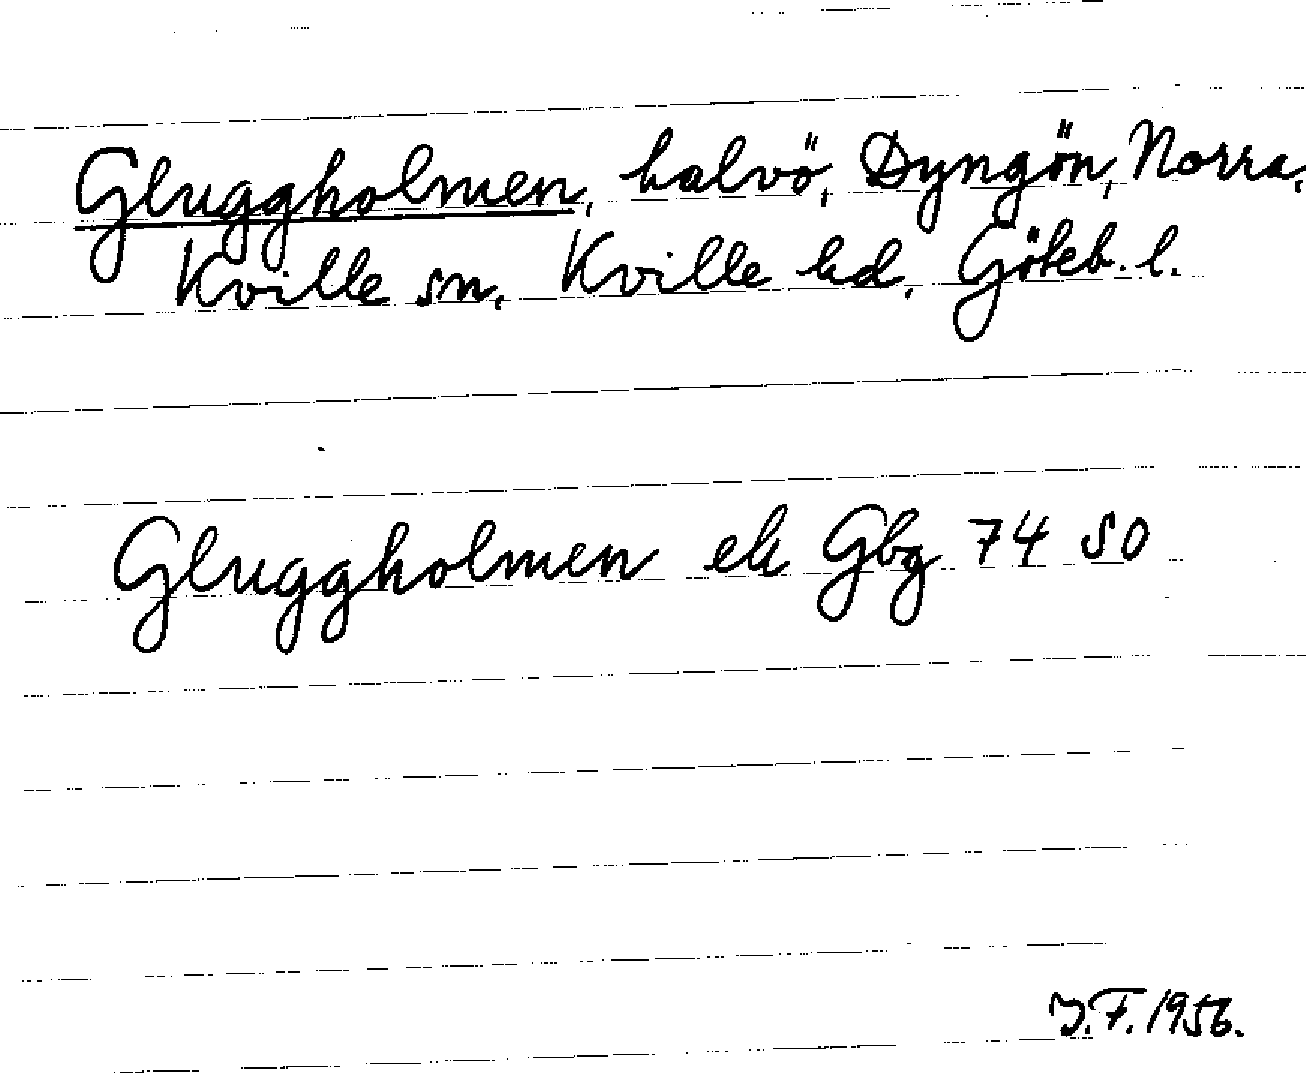 Gluggholmen, halvö, Dyngön, Norra,
Kville sn, Kville hd, Göteb. l.
Gluggholmen ek Gbg 74 SO
J.F. 1956.